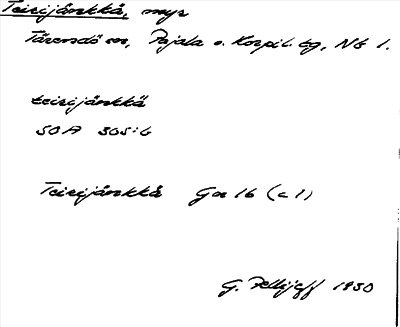 Teirijänkkä, myr
Tärendö sn, Pajala o. Korpil. tg, Nb l.
teirijänkkä
SOA 305:6
Teirijänkkä Gex 16 (c 1)
G. Pellijeff 1950